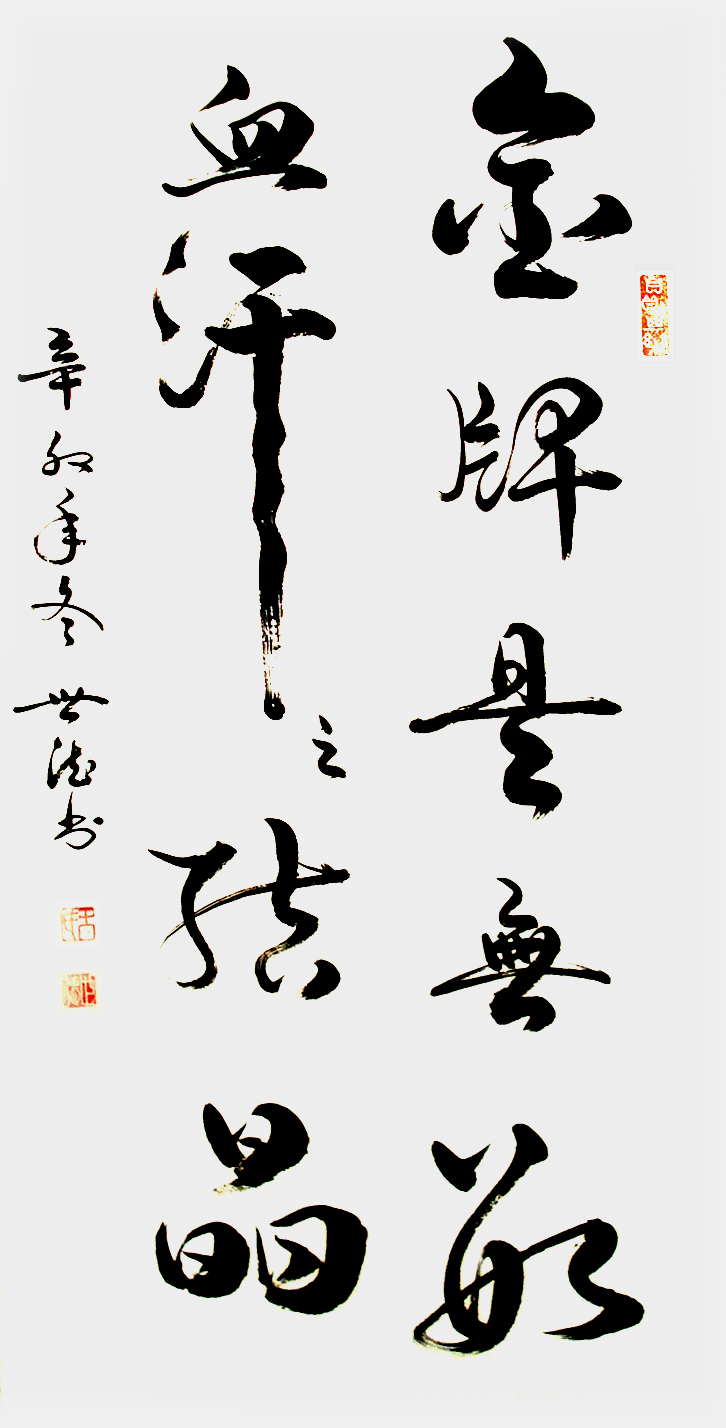 金牌是無數
血汗之結晶
辛卯年冬 世德书